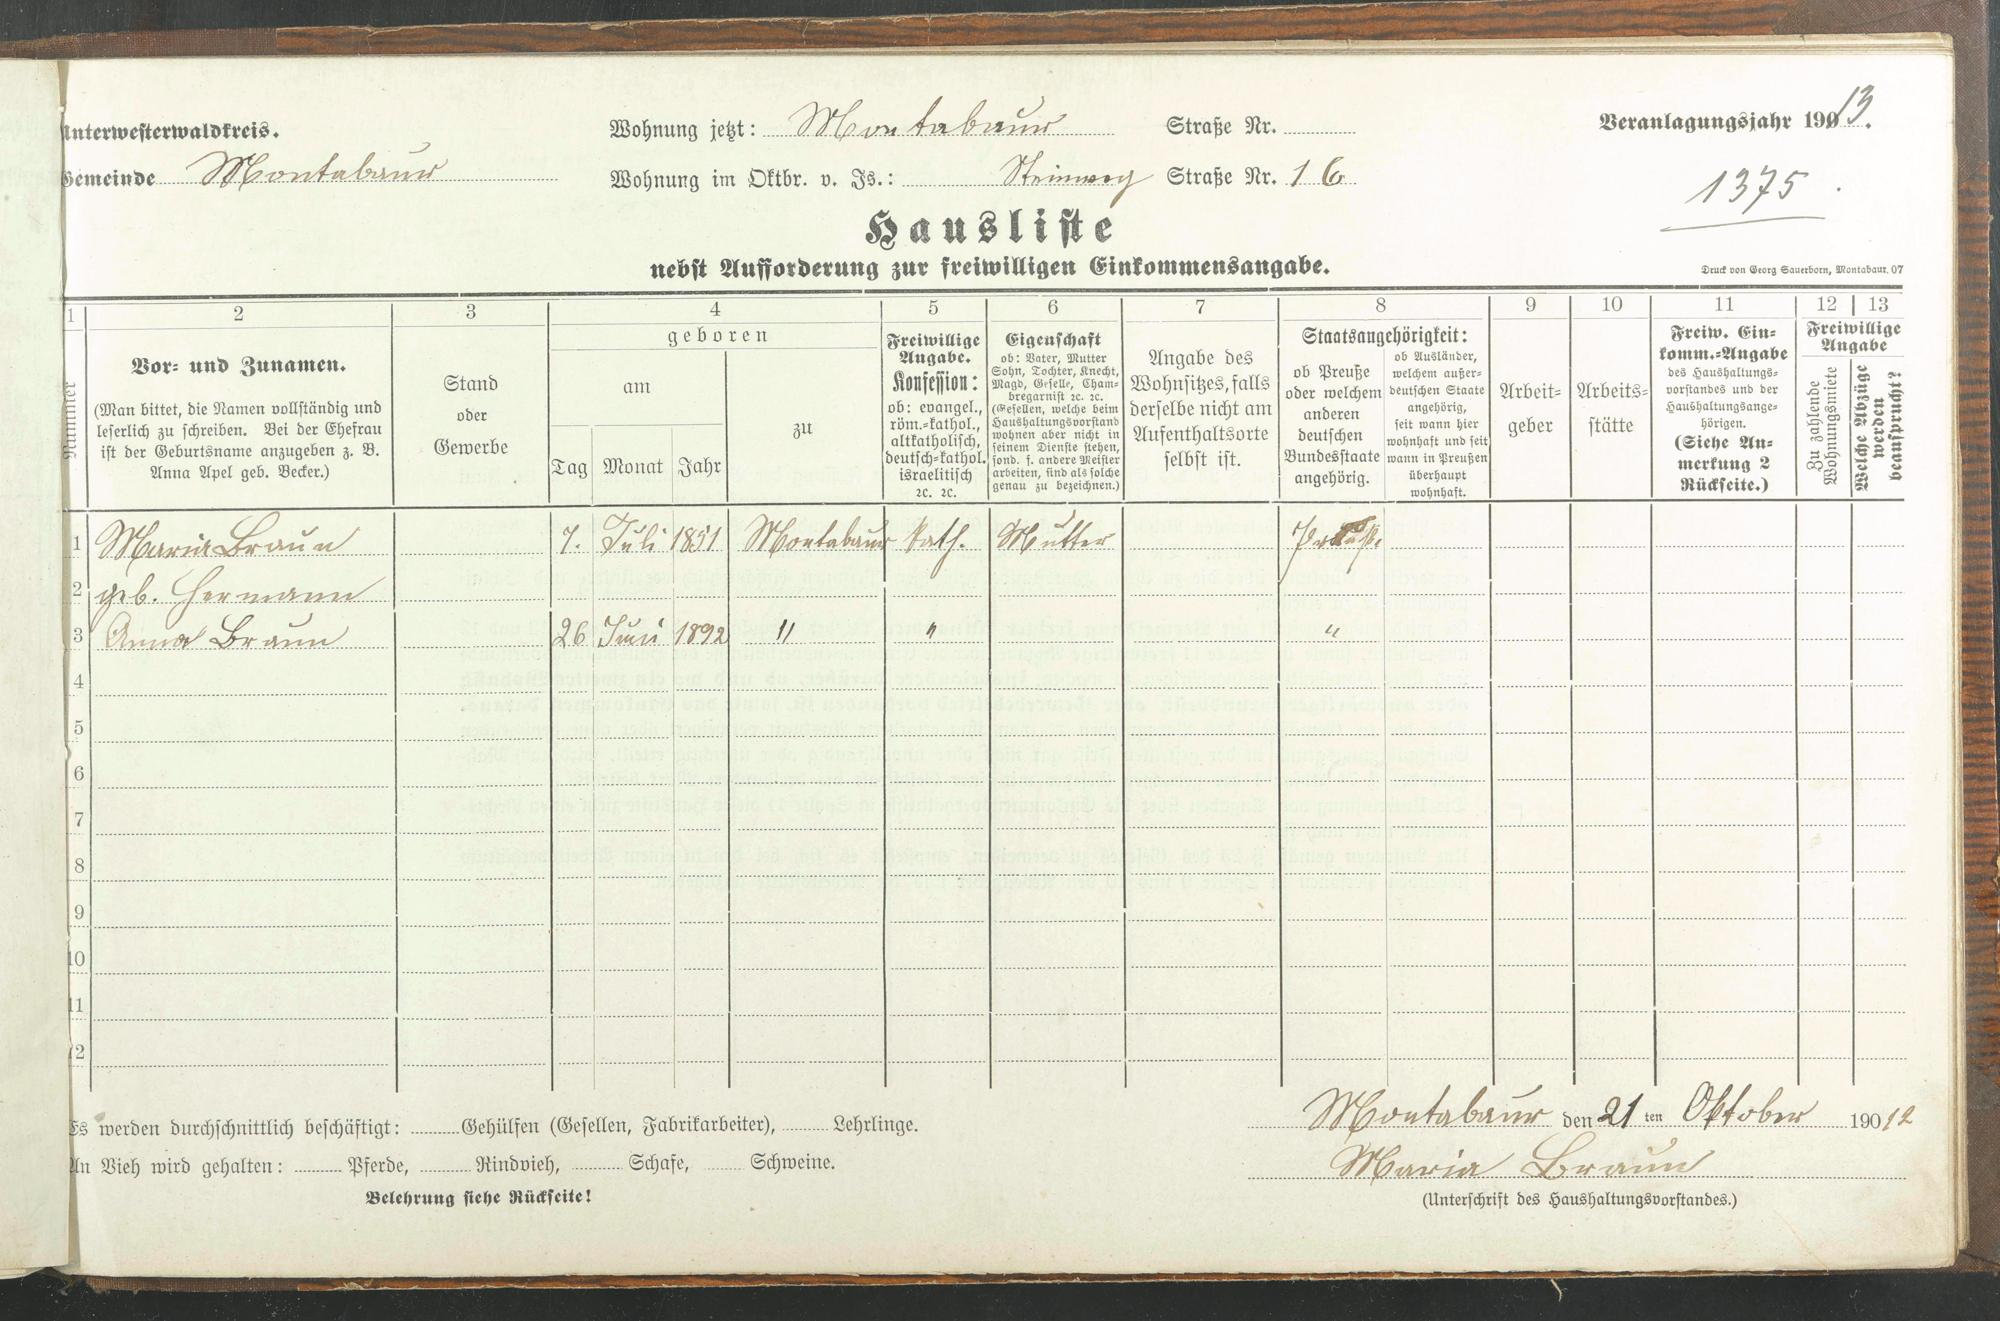 Unterwesterwaldkreis.
Gemeinde Montabaur
Wohnung jetzt: Montabaur Straße Nr.
Wohnung im Oktbr. v. Js.: Steinweg Straße Nr. 16
Veranlagungsjahr 1913.
1375
Hausliste
nebst Aufforderung zur freiwilligen Einkommensangabe.
Druck von Georg Sauerborn, Montabaur. 07
1 2 3 4 5 6 7 8 9 10 11 12 13
Nummer
Vor- und Zunamen.
(Man bittet, die Namen vollständig und
leserlich zu schreiben. Bei der Ehefrau
ist der Geburtsname anzugeben z. B.
Anna Apel geb. Becker.)
Stand
oder
Gewerbe
geboren
am
Tag Monat Jahr
zu
Freiwillige
Angabe.
Konfession:
ob: evangel.,
röm.-kathol.,
altkatholisch,
deutsch-kathol.
israelitisch
ꝛc. ꝛc.
Eigenschaft
ob: Vater, Mutter
Sohn, Tochter, Knecht,
Magd, Geselle, Cham-
bregarnist ꝛc. ꝛc.
(Gesellen, welche beim
Haushaltungsvorstand
wohnen aber nicht in
seinem Dienste stehen,
sond. f. andere Meister
arbeiten, sind als solche
genau zu bezeichnen.)
Angabe des
Wohnsitzes, falls
derselbe nicht am
Aufenthaltsorte
selbst ist.
Staatsangehörigkeit:
ob Preuße
oder welchem
anderen
deutschen
Bundesstaate
angehörig.
ob Ausländer,
welchem außer-
deutschen Staate
angehörig,
seit wann hier
wohnhaft und seit
wann in Preußen
überhaupt
wohnhaft.
Arbeit-
geber
Arbeits-
stätte
Freiw. Ein-
komm.-Angabe
des Haushaltungs-
vorstandes und der
Haushaltungsange-
hörigen.
(Siehe An-
merkung 2
Rückseite.)
Freiwillige
Angabe
Zu zahlende
Wohnungsmiete
Welche Abzüge
werden
beansprucht?
1 Maria Braun 7. Juli 1851 Montabaur kath. Mutter Preuß.
2 geb. Hermann
3 Anna Braun 26 Juni 1892 " " "
4
5
6
7
8
9
10
11
12
Es werden durchschnittlich beschäftigt: Gehülfen (Gesellen, Fabrikarbeiter), Lehrlinge.
An Vieh wird gehalten: Pferde, Rindvieh, Schafe, Schweine.
Belehrung siehe Rückseite!
Montabaur den 21 ten Oktober 19012
Maria Braun
(Unterschrift des Haushaltungsvorstandes.)